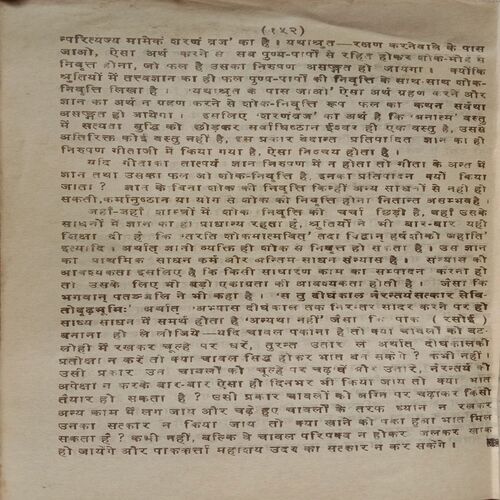 (१५२)
न्परित्यज्य मामेकं शरणं व्रज' का है। यथाश्रुत—रक्षण करनेवाले के पास
जाओ, ऐसा अर्थ करने से सब पुण्य-पापों से रहित होकर शोक-मोह से
निवृत्त होना, जो फल है उसका निरूपण असङ्गत हो जायगा। क्योंकि
श्रुतियों में तत्त्वज्ञान का ही फल पुण्य-पापों की निवृत्ति के साथ-साथ शोक-
निवृत्ति लिखा है। 'यथाश्रुत के पास जाओ' ऐसा अर्थ ग्रहण करने और
ज्ञान का अर्थ न ग्रहण करने से शोक-निवृत्ति रूप फल का कथन सर्वथा
असङ्गत हो जायेगा। इसलिए 'शरणंव्रज' का अर्थ है कि 'अनात्म' वस्तु
में सत्यता बुद्धि को छोड़कर सर्वाधिष्ठान ईश्वर ही एक वस्तु है, उससे
अतिरिक्त कोई वस्तु नहीं है, इस प्रकार वेदान्त प्रतिपादित ज्ञान का ही
निरूपण गीताजी में किया गया है, ऐसा निश्चय होता है।
यदि गीताका तात्पर्य ज्ञान निरूपण में न होता तो गीता के अन्त में
ज्ञान तथा उसका फल जो शोक-निवृत्ति है, इनका प्रतिपादन क्यों किया
जाता? ज्ञान के बिना शोक की निवृत्ति किन्हीं अन्य साधनों से नहीं हो
सकती, कर्मानुष्ठान या योग से शोक की निवृत्ति होना नितान्त असम्भव है।
जहाँ-जहाँ शास्त्रों में शोक निवृत्ति की चर्चा छिड़ी है, वहाँ उसके
साधनों में ज्ञान का हो प्राधान्य रहता है, श्रुतियों ने भी बार-बार यही
शिक्षा दी है कि 'तरति शोकमात्मवित्' तदा विद्वान् हर्षशोकौ जहाति'
इत्यादि। अर्थात् ज्ञानी व्यक्ति ही शोक से निवृत्त हो सकता है। उस ज्ञान
का प्राथमिक साधन कर्म और अन्तिम साधन संन्यास है। संन्यास की
आवश्यकता इसलिए है कि किसी साधारण काम का सम्पादन करना हो
तो उसके लिए भी बड़ी एकाग्रता की आवश्यकता होती है। जैसा कि
भगवान् पतञ्जलि ने भी कहा है। 'स तु दीर्घकाल नैरन्तर्यसत्कार सेवि-
तोदृढभूमिः' अर्थात् 'अभ्यास दीर्घकाल तक निरन्तर सादर करने पर ही
साध्य साधन में समर्थ होता है 'अन्यथा नहीं' जैसा कि पाक (रसोई)
बनाना हो ले लीजिये—यदि चावल पकाना है तो क्या चावलों को बट-
लोही में रखकर चूल्हे पर धरें, तुरन्त उतार लें अर्थात् दीर्घकालकी
प्रतीक्षा न करें तो क्या चावल सिद्ध होकर भात बन सकेंगे? कभी नहीं।
उसी प्रकार उन चावलों को चूल्हे पर चढ़ावें और उतारें, नैरन्तर्य की
अपेक्षा न करके बार-बार ऐसा ही दिनभर भी किया जाय तो क्या भात
तैयार हो सकता है? उसी प्रकार चावलों को अग्नि पर चढ़ाकर किसी
अन्य काम में लग जाय और चढ़े हुए चावलों के तरफ ध्यान न रखकर
उनका सत्कार न किया जाय तो क्या खाने को पका हुआ भात मिल
सकता है? कभी नहीं, बल्कि वे चावल परिपक्व न होकर जलकर खाक
हो जायेंगे और पाककर्ता महाशय उदर का सत्कार न कर सकेंगे।